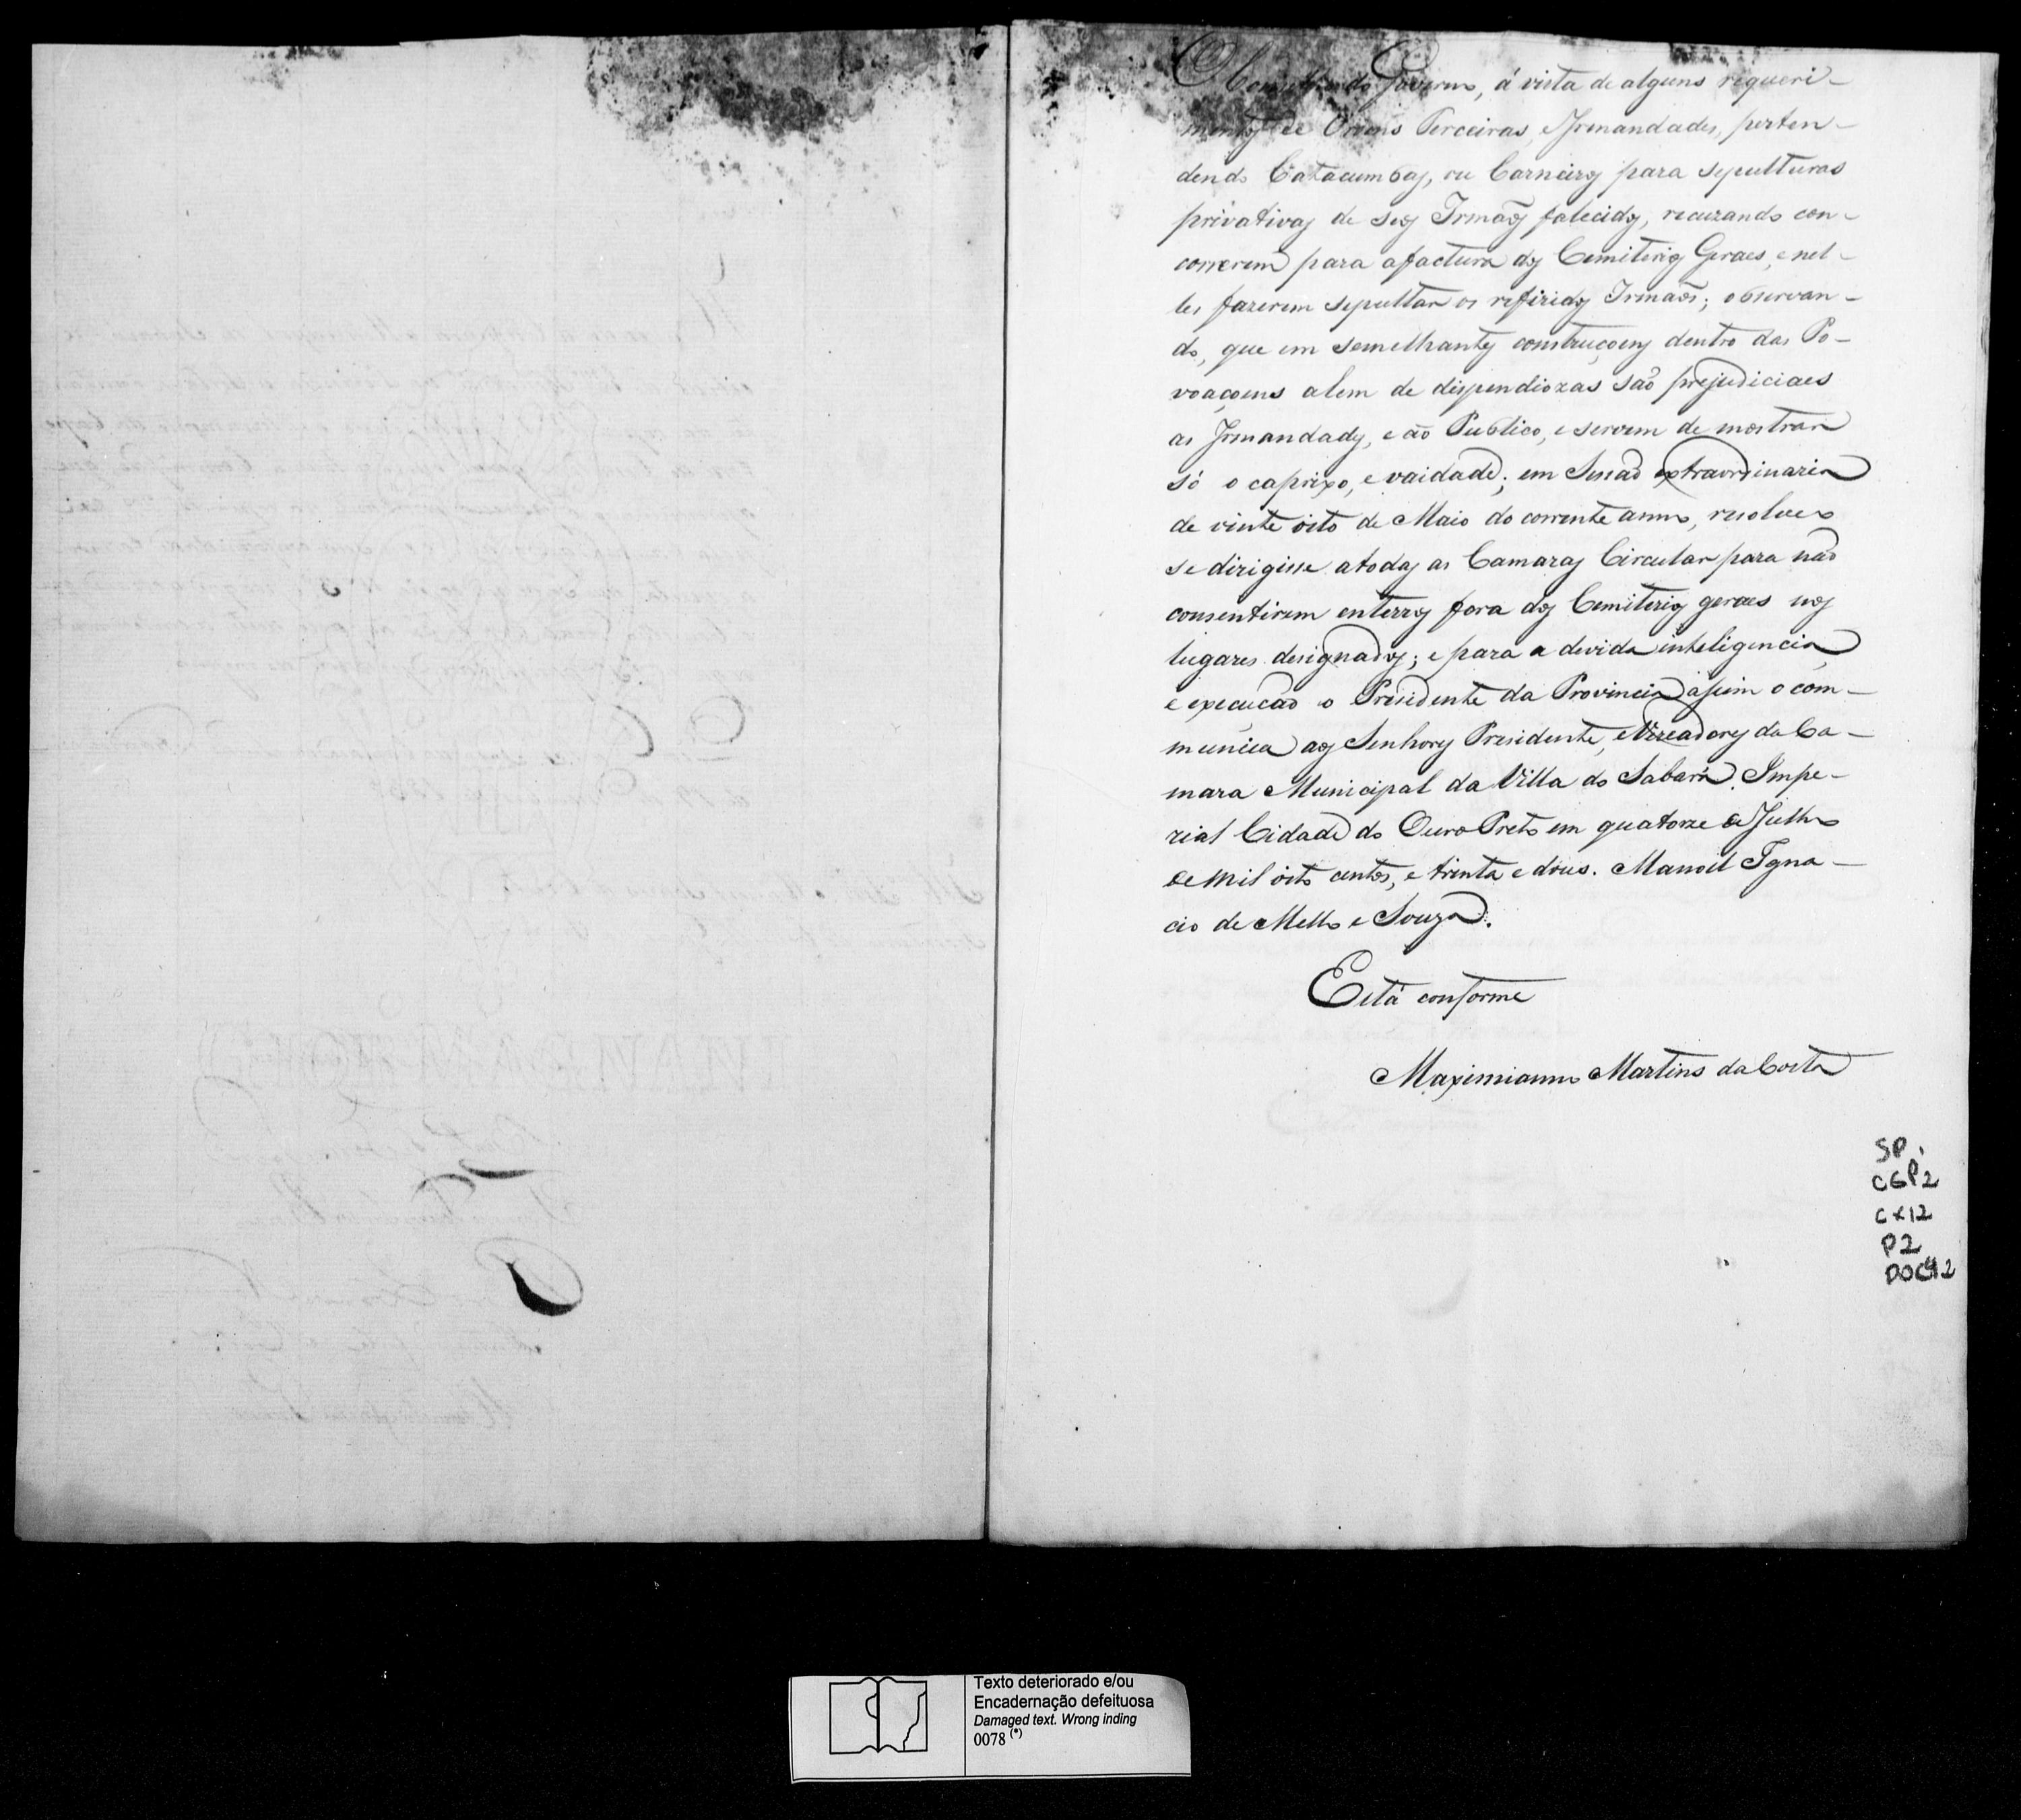 O Conselho do Governo, á vista de alguns requeri-
mentos de Ordens Terceiras, e Irmandades, perten-
dendo Catacumbas, ou Carneiros para sepulturas
privativas de seos Irmãos falecidos, recuzando con-
correrem para a factura dos Cemiterios Geraes, e nel-
les fazerem sepultar os referidos Irmãos; observan-
do, que em semelhantes construçoens dentro das Po-
voaçoens alem de dispendiozas são prejudiciaes
as Irmandades, e ão Publico, e servem de mostrar
só o caprixo, e vaidade; em Sessão extraordinaria
de vinte oito de Maio do corrente anno, resolveo
se dirigisse a todas as Camaras Circular para não
consentirem enterros fora dos Cemiterios geraes nos
lugares designados; e para a devida inteligencia,
e execução o Presidente da Provincia assim o com-
munica aos Senhores Presidente, e Vereadores da Ca-
mara Municipal da Villa do Sabará. Impe-
rial Cidade do Ouro Preto em quatorze de Julho
de mil oito centos, e trinta e dous. Manoel Igna-
cio de Mello e Souza.
Está conforme
Maximianno Martins da Costa
SP.
CGP2
CX12
P2
DOC42
Texto deteriorado e/ou
Encadernação defeituosa
Damaged text. Wrong inding
0078 (*)